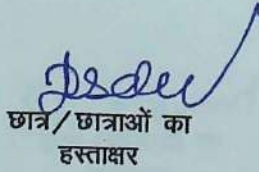 छात्र/छात्राओं का
हस्ताक्षर